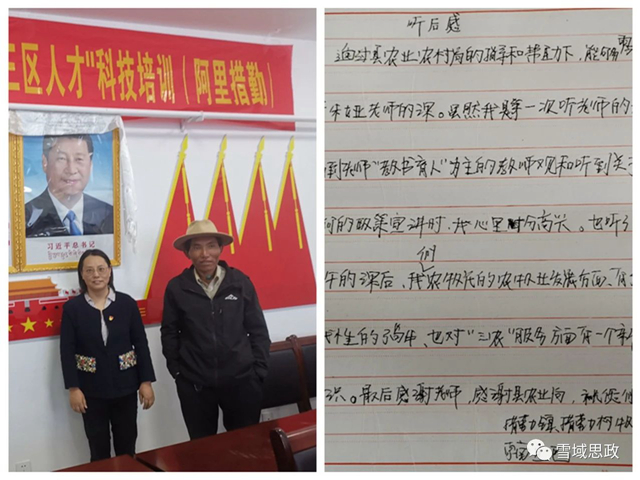 三区人才"科技培训（阿里措勤）
习近平总书记
听后感
通过县农业农村局的指导和帮助下，能够
老师的课。虽然我是第一次听老师的
到老师"教书育人"为主的教师观和听到关
的政策宣讲时，我心里十分高兴。也听
的课后，我们农牧民的农牧业发展方面、
性的了解，也对"三农"服务方面有一个
识。最后感谢老师，感谢县农业局，祝您们
措勤镇措勤村
雪域思政